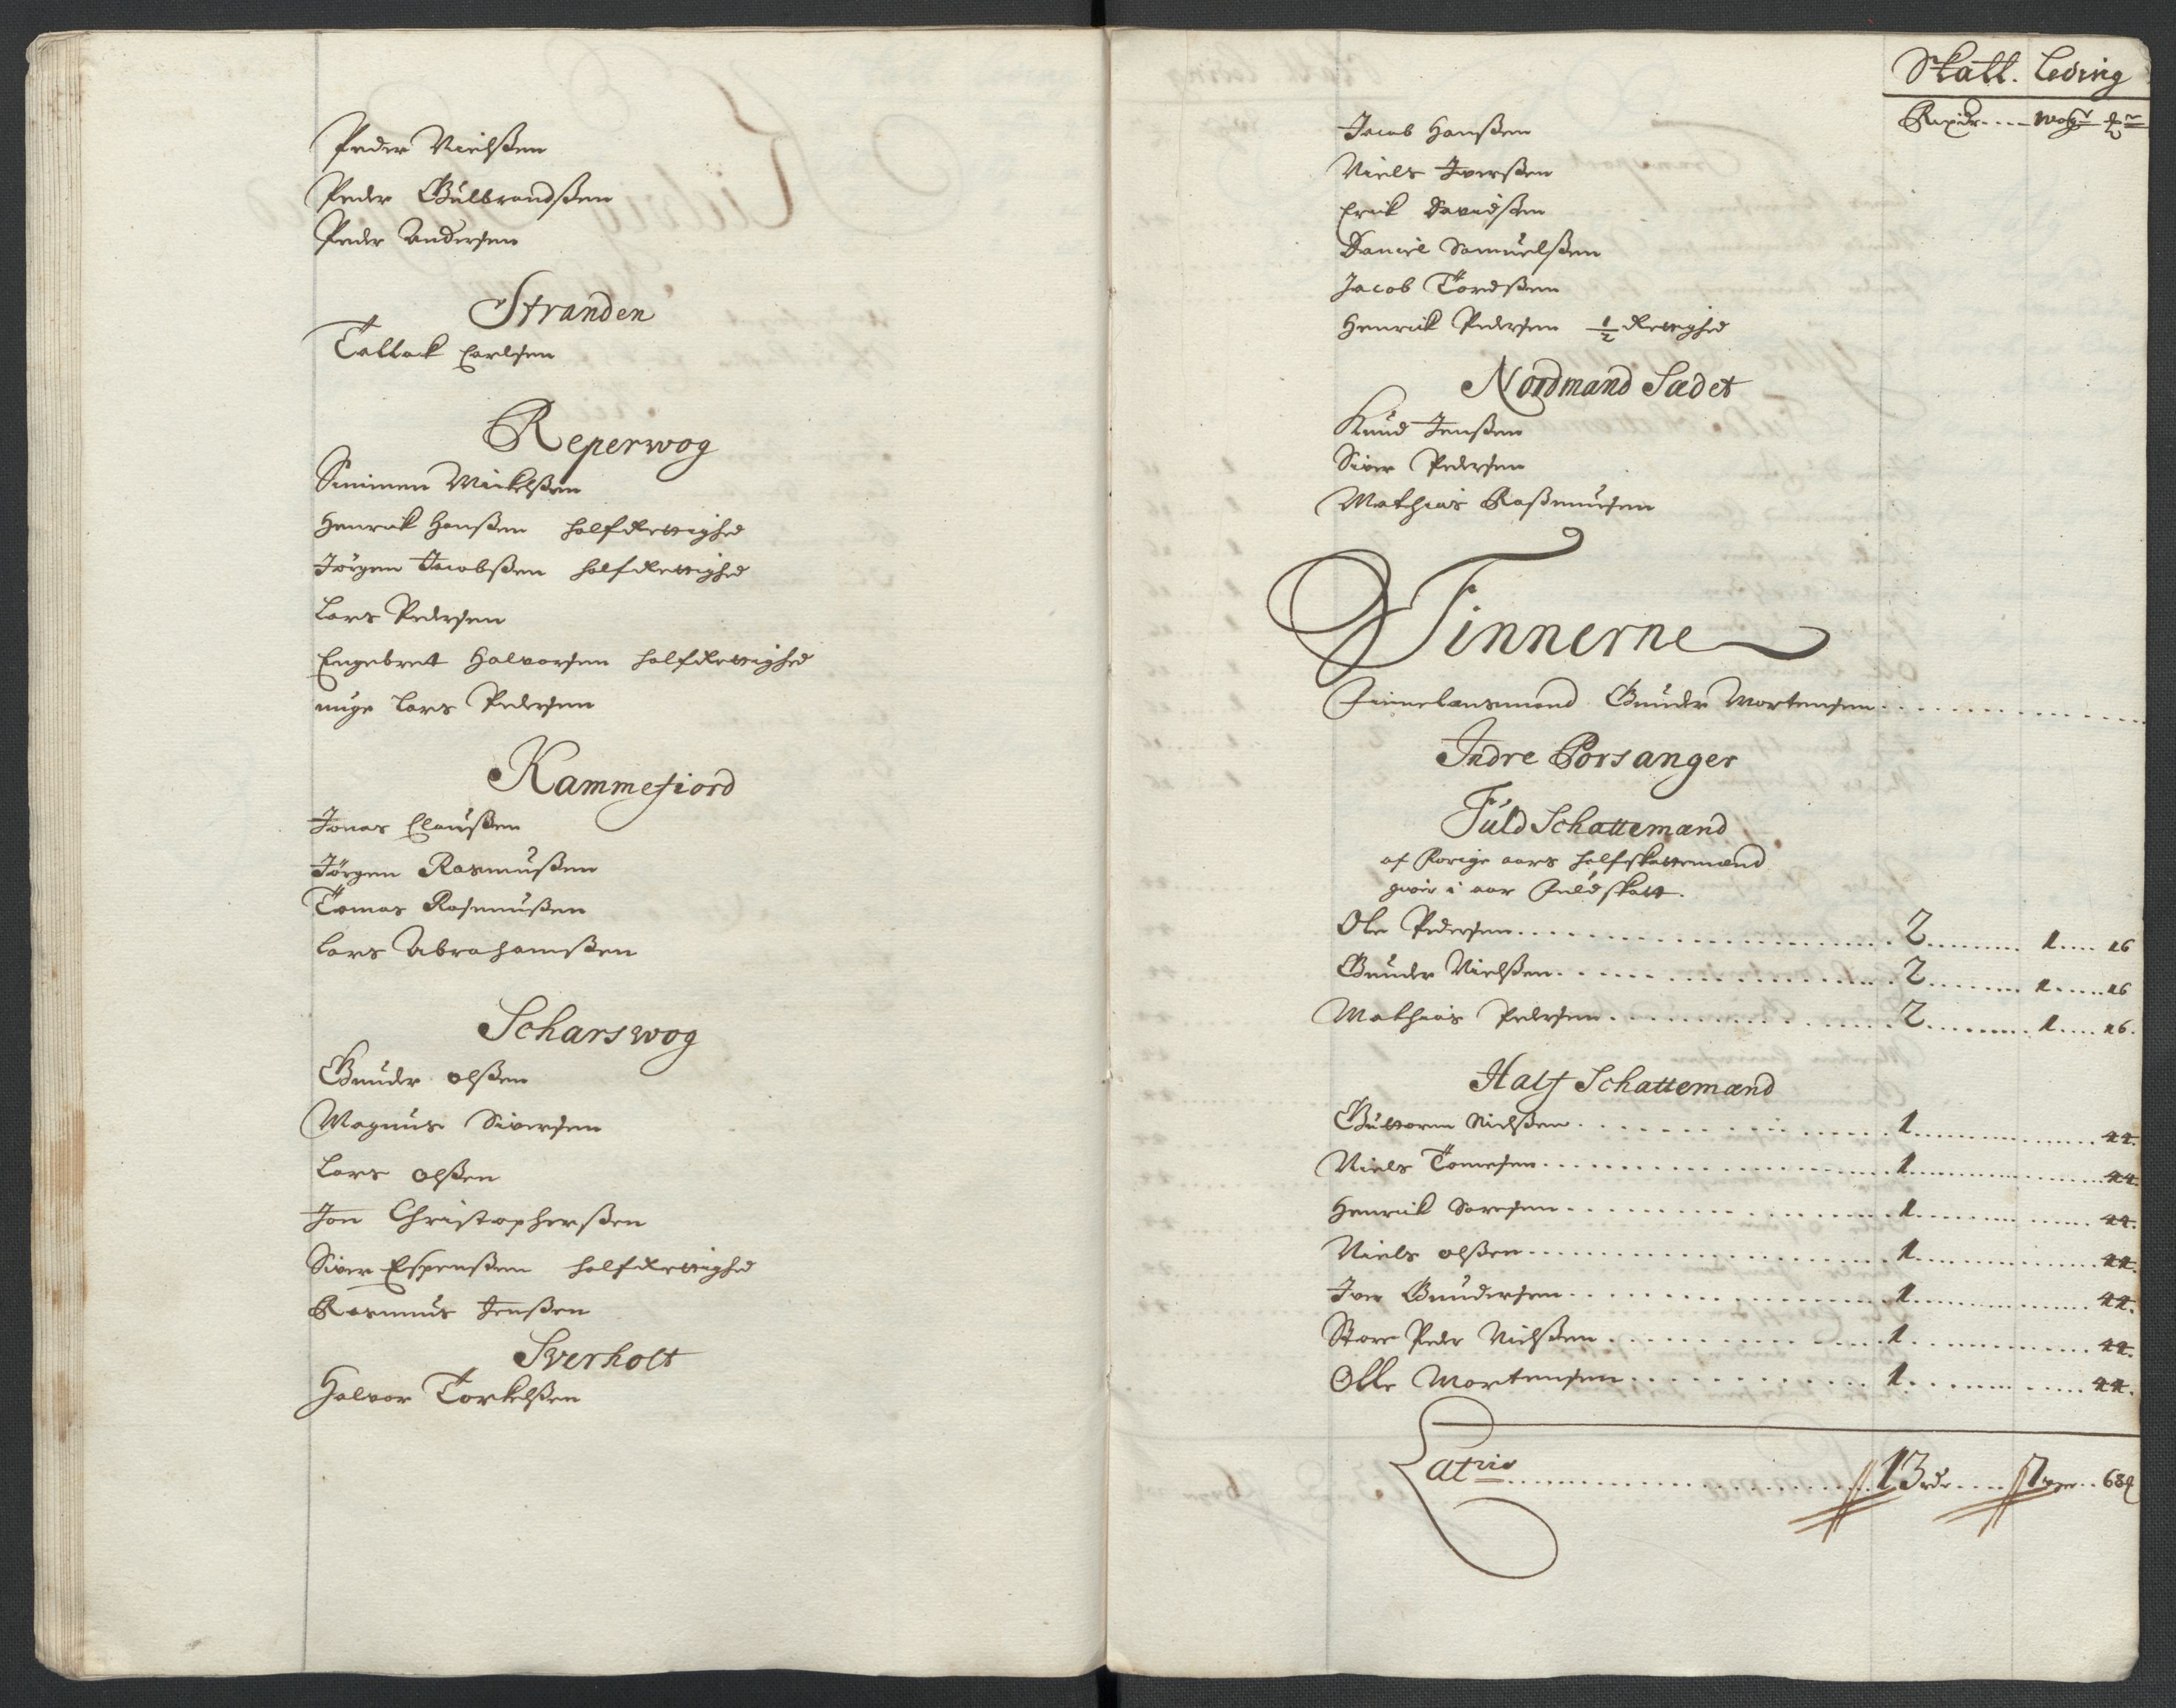 Peder Nielsßen
Peder Gulbrandsßen
Peder Andersen
Stranden
Tallack Carlsen
Reperwog
Simmen Mickelsßen
Henrick Hansßen half Rettighed
Jørgen Jacobsßen half Rettighed
Lars Pedersen
Engebrett Halvorsen half Rettighed
unge Lars Pedersen
Kammefiord
Jonas Clausßen
Jørgen Rasmusßen
Tomas Rasmusßen
Lars Abrahamsßen
Scharswog
Gunder olsßen
Magnus Siversen
Lars olsßen
Jon Christophersßen
Siver Espensßen half Rettighed
Rasmus Jensßen
Sverholt
Halvor Torkelsßen
Skatt. Leding
Rixdr .... wogr
Jacob Hansßen
Niels Iversßen
Erick Davidsßen
Daniel Samuelsßen
Jacob Tordsßen
Henrick Pedersen ½ Rettighed
Nordmand Sædet
Knud Jensßen
Siver Pedersen
Mathias Rasßmusen
Finnerne
Finnelensmand Gunder Mortensen
Indre Porsanger
Fuld Schattemænd
af Forige aars halfskattemænd
givir i aar Fuldskatt.
Ole Pedersen ... 2 ... 1 ... 16
Gunder Nielsßen ... 2 ... 1 ... 16
Mathias Pedersen ... 2 ... 1 ... 16.
Half Schattemænd
Guttorm Nielsßen ... 1 ... 44.
Niels Tomesen ... 1 ... 44.
Henrick Saresen ... 1 ... 44.
Niels olsßen ... 1 ... 44.
Iver Gundersen ... 1 ... 44.
Store Peder Nielsßen ... 1 ... 44.
Olle Mortensen ... 1 ... 44.
Latris ... 13 rdr ... 7 wger .. 68